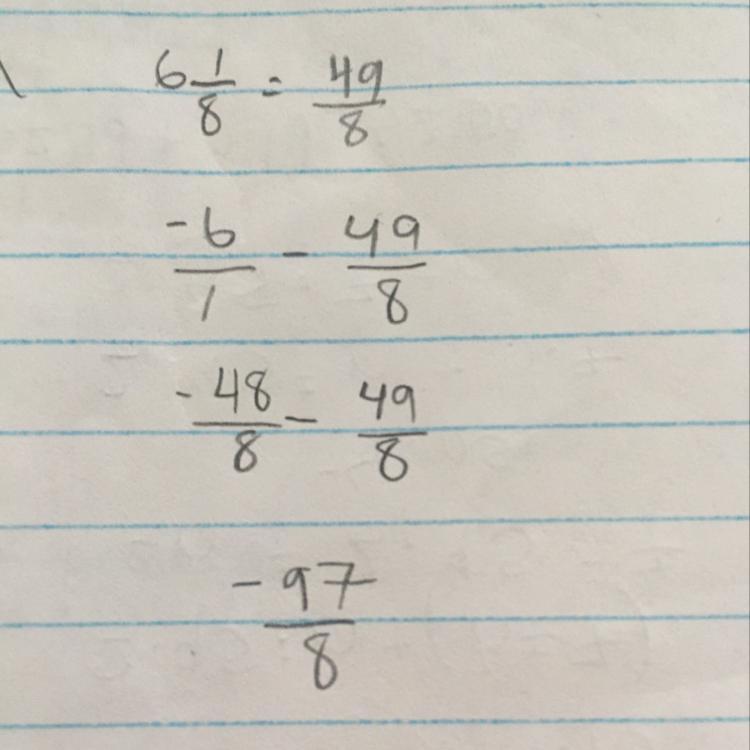 6 1/8 = 49/8
-6/1 - 49/8
-48/8 - 49/8
-97/8